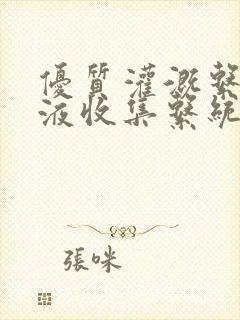 優質灌溉繫
液收集繫統
張咪